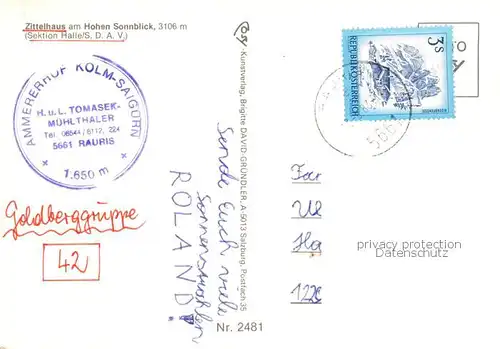 Zittelhaus am Hohen Sonnblick, 3106 m
(Sektion Halle/S. D. A. V.)
AMMERERHOF KOLM-SAIGURN
H. u. L. TOMASEK-
MÜHLTHALER
Tel. 06544 / 8112, 224
5661 RAURIS
1.650 m
Goldberggruppe
42
Sende Euch viele
Sonnenstrahlen
ROLAND!
Kunstverlag Brigitte DAVID-GRÜNDLER, A-5013 Salzburg, Postfach 35
Nr. 2481
3S
REPUBLIK ÖSTERREICH
5661
privacy protection
Datenschutz